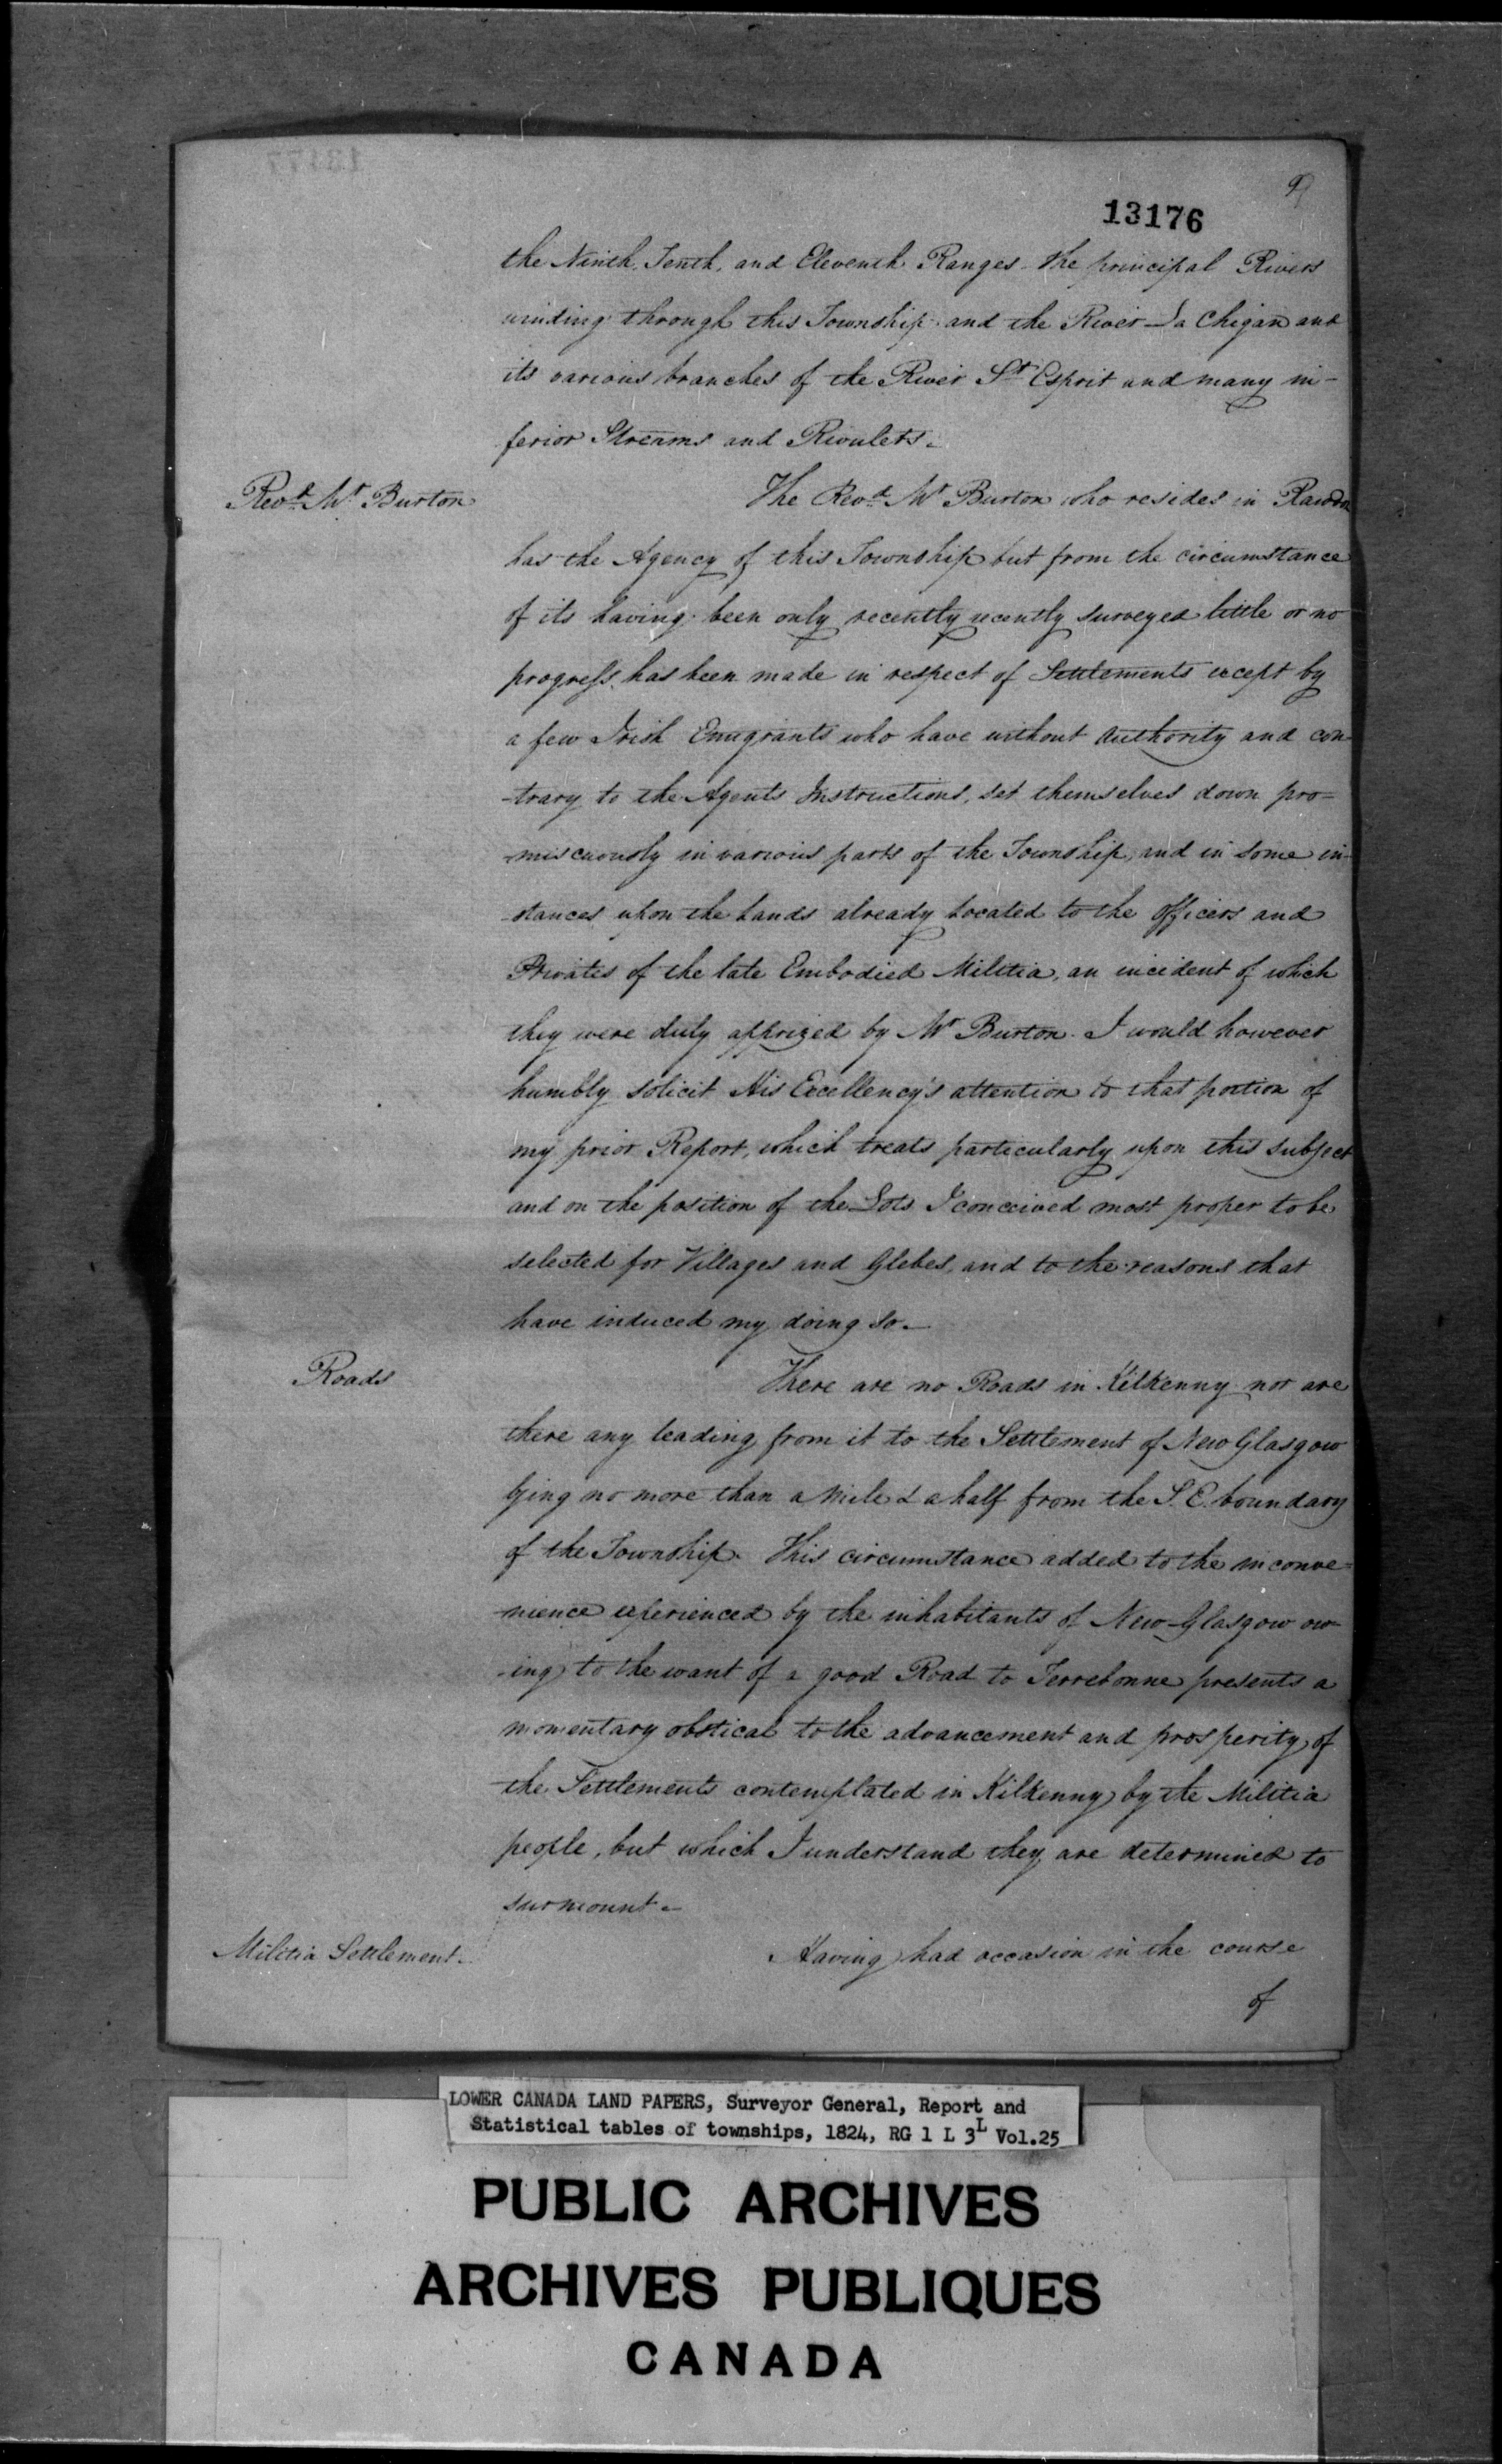 9
13176
the Ninth, Tenth, and Eleventh Ranges. The principal Rivers
winding through this Township and the River La Chigan and
its various branches of the River St Esprit and many in-
ferior Streams and Rivulets.
Revd. Mr Burton
The Revd. Mr Burton who resides in Rawdon
has the Agency of this Township but from the circumstance
of its having been only recently recently surveyed little or no
progress has been made in respect of Settlements except by
a few Irish Emigrants who have without Authority and con-
-trary to the Agents Instructions, set themselves down pro=
-miscuously in various parts of the Township, and in some in-
-stances upon the Lands already Located to the officers and
Privates of the late Embodied Militia, an incident of which
they were duly apprized by Mr Burton. I would however
humbly solicit His Excellency's attention to that portion of
my prior Report, which treats particularly upon this subject
and on the position of the Lots I conceived most proper to be
selected for Villages and Glebes, and to the reasons that
have induced my doing so.
Roads
There are no Roads in Kilkenny nor are
there any leading from it to the Settlement of New Glasgow
lying no more than a Mile & a half from the S. E. boundary
of the Township. This circumstance added to the inconve=
-nience experienced by the inhabitants of New-Glasgow ow-
-ing to the want of a good Road to Terrebonne presents a
momentary obstical to the advancement and prosperity of
the Settlements contemplated in Kilkenny by the Militia
people, but which I understand they are determined to
surmount.
Militia Settlement.
Having had occasion in the course
of
LOWER CANADA LAND PAPERS, Surveyor General, Report and
Statistical tables of townships, 1824, RG 1 L 3L Vol.25
PUBLIC ARCHIVES
ARCHIVES PUBLIQUES
CANADA